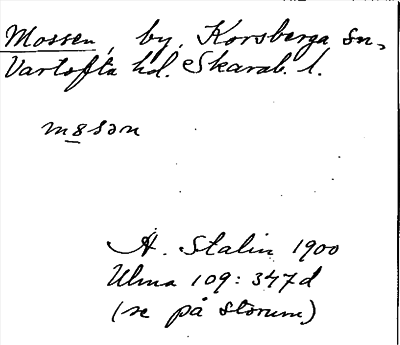 Mossen, by, Korsberga sn,
Vartofta hd. Skarab. l.
m8sən
A. Stalin 1900
Ulma 109: 347 d
(se på storum)